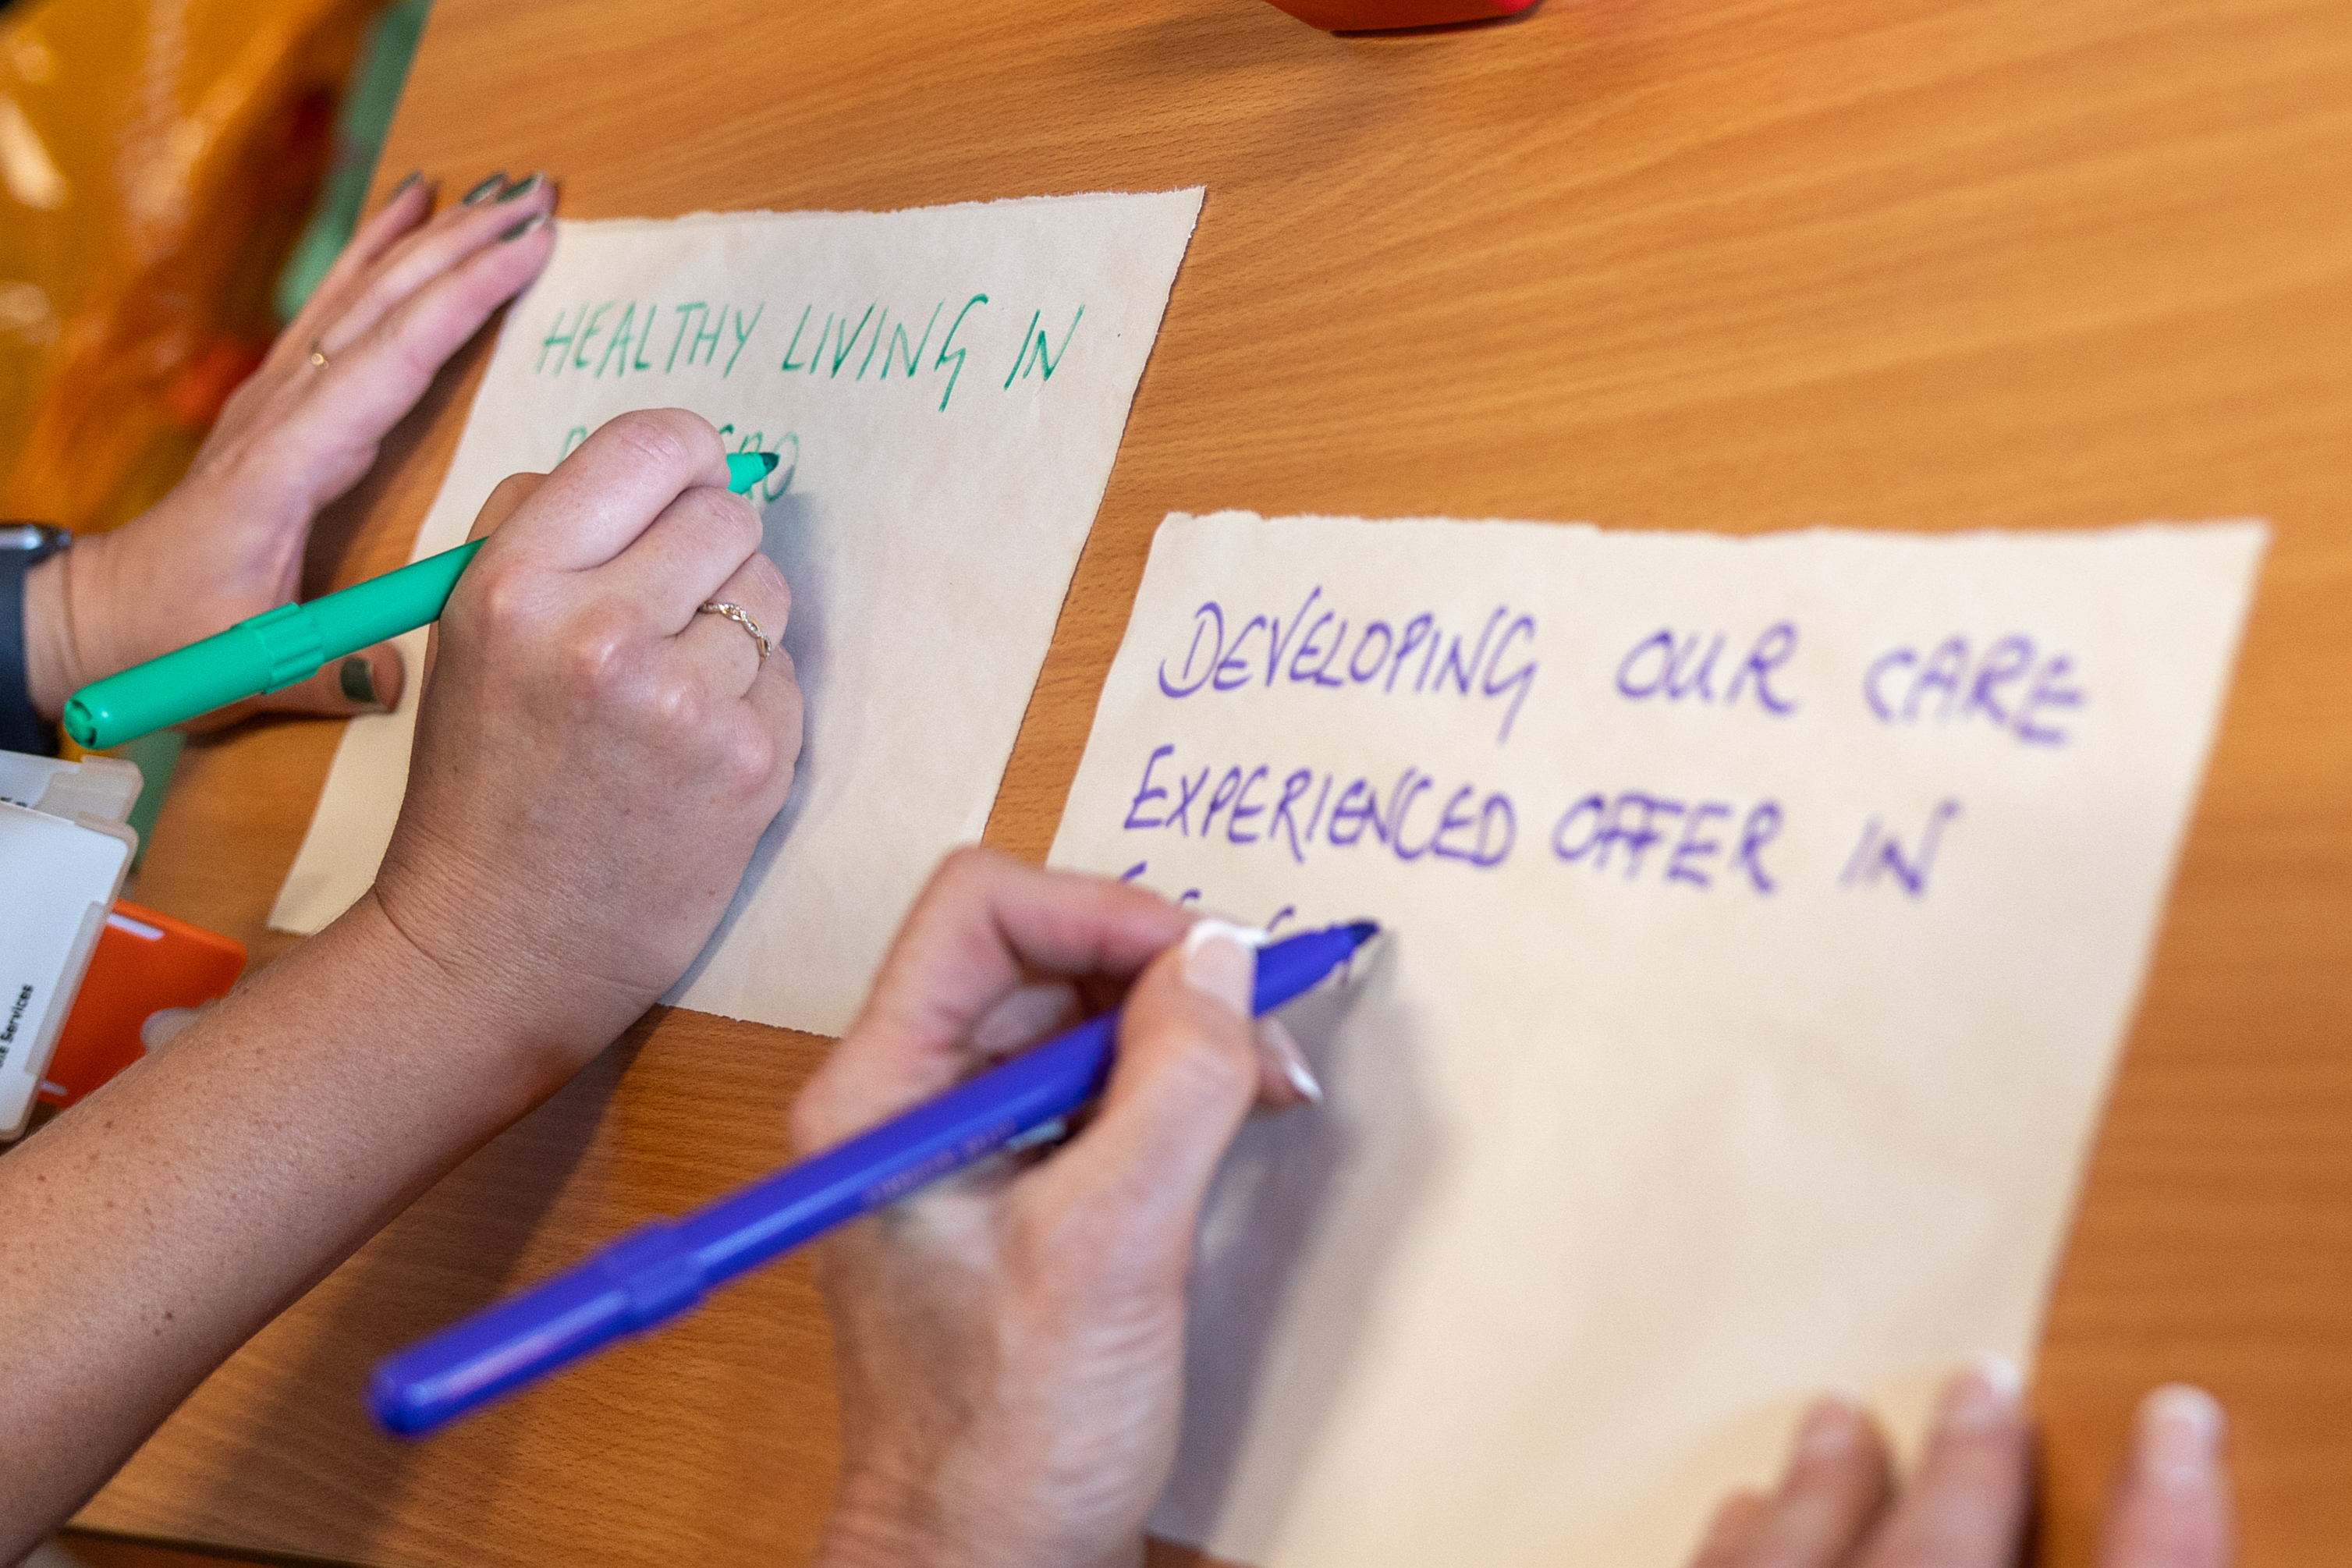 HEALTHY LIVING IN
DEVELOPING OUR CARE
EXPERIENCED OFFER IN
Services